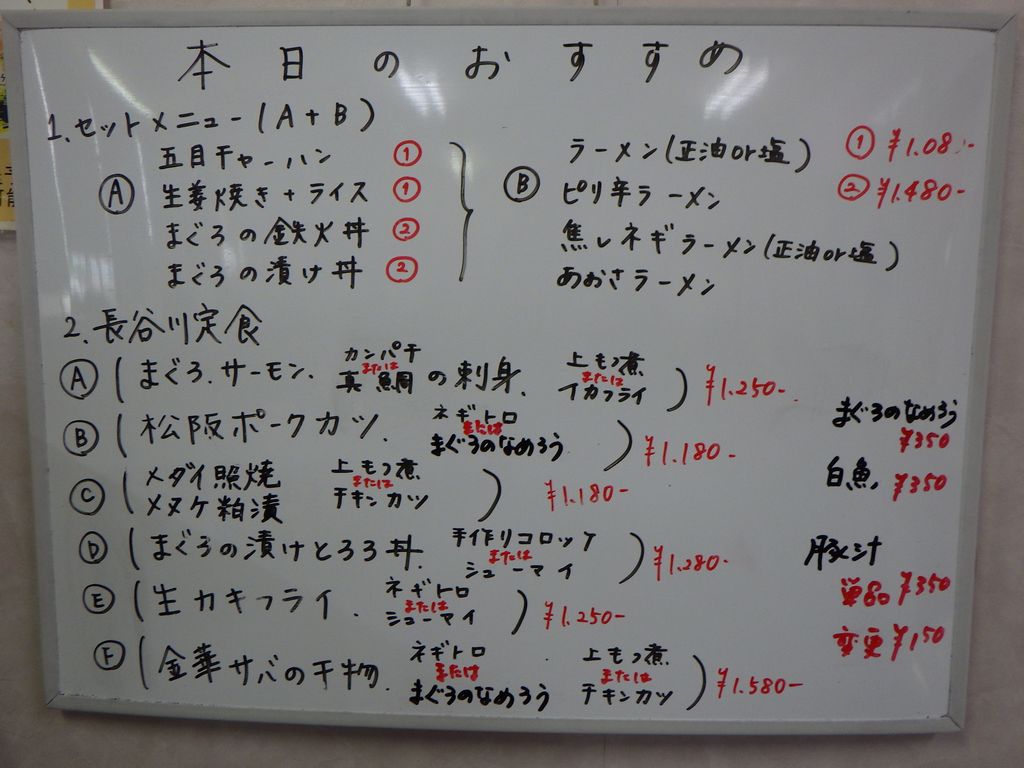 本日のおすすめ
1.セットメニュー(A+B)
Ⓐ
五目チャーハン ①
生姜焼き+ライス ①
まぐろの鉄火丼 ②
まぐろの漬け丼 ②
Ⓑ
ラーメン(正油or塩)
ピリ辛ラーメン
焦しネギラーメン(正油or塩)
あおさラーメン
① ¥1.08
② ¥1.480-
2.長谷川定食
Ⓐ(まぐろ.サーモン. カンパチ または 真鯛 の刺身. 上もつ煮 または イカフライ) ¥1.250-
Ⓑ(松阪ポークカツ. ネギトロ または まぐろのなめろう) ¥1.180-
Ⓒ(メダイ照焼 メヌケ粕漬 上もつ煮 または チキンカツ) ¥1.180-
Ⓓ(まぐろの漬けとろろ丼. 手作りコロッケ または シューマイ) ¥1.280-
Ⓔ(生カキフライ. ネギトロ または シューマイ) ¥1.250-
Ⓕ(金華サバの干物. ネギトロ または まぐろのなめろう 上もつ煮 または チキンカツ) ¥1.580-
まぐろのなめろう
¥350
白魚 ¥350
豚汁
単品 ¥350
変更 ¥150